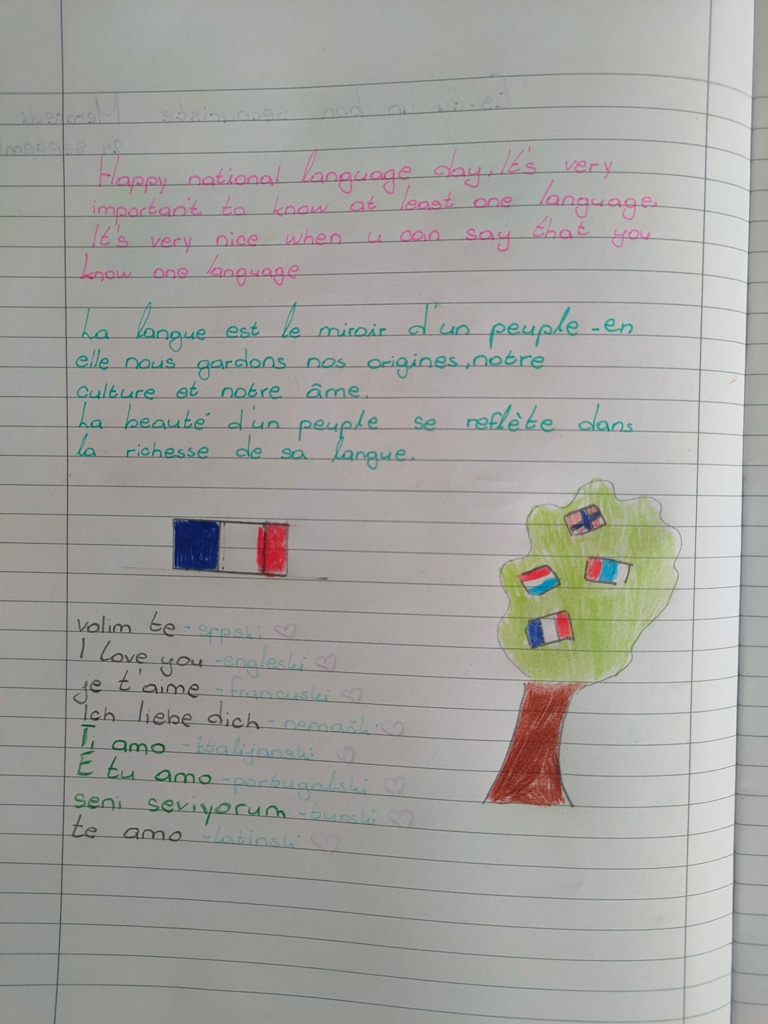 Happy national language day. It's very
important to know at least one language.
It's very nice when u can say that you
know one language
La langue est le miroir d'un peuple - en
elle nous gardons nos origines, notre
culture et notre âme.
La beauté d'un peuple se reflète dans
la richesse de sa langue.
volim te - srpski
I love you - engleski
je t'aime - francuski
Ich liebe dich -
Ti amo - italijanski
E tu amo - portugalski
seni seviyorum - turski
te amo - latinski